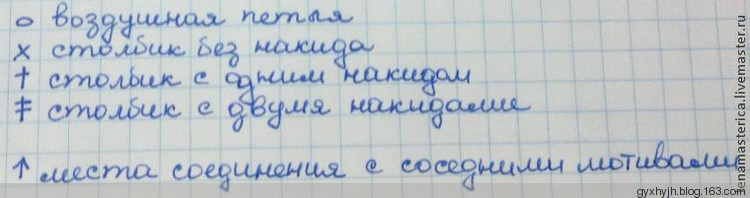 о воздушная петля
× столбик без накида
† столбик с одним накидом
‡ столбик с двумя накидами
↑ места соединения с соседними мотивами
lenamasterica.livemaster.ru
gyxhyjh.blog.163.com